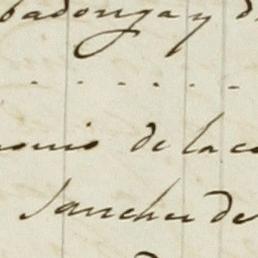 badonga y d
. . . . . .
onio de la ca
Sanchez de